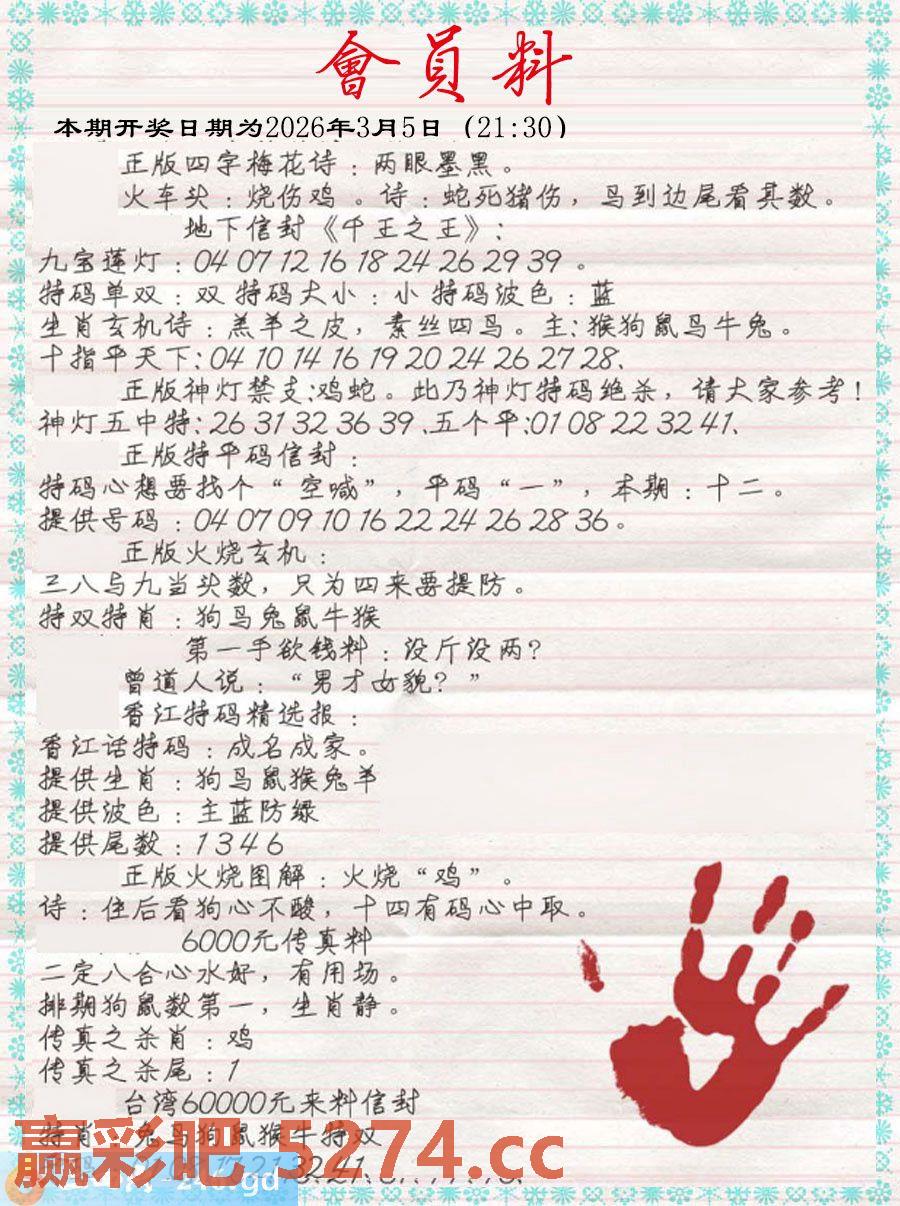 會員料
本期开奖日期为2026年3月5日（21:30）
正版四字梅花诗：两眼墨黑。
火车头：烧伤鸡。诗：蛇死猪伤，鸟到边尾看其数。
地下信封《千王之王》：
九宝莲灯：04 07 12 16 18 24 26 29 39 。
特码单双：双 特码大小：小 特码波色：蓝
生肖玄机诗：羔羊之皮，素丝四鸟。主：猴狗鼠鸟牛兔。
十指平天下：04 10 14 16 19 20 24 26 27 28、
正版神灯禁支：鸡蛇。此乃神灯特码绝杀，请大家参考！
神灯五中特：26 31 32 36 39 、五个平：01 08 22 32 41、
正版特平码信封：
特码心想要找个“空喊”，平码“一”，本期：十二。
提供号码：04 07 09 10 16 22 24 26 28 36。
正版火烧玄机：
三八与九当头数，只为四来要提防。
特双特肖：狗鸟兔鼠牛猴
第一手欲钱料：没斤没两？
曾道人说：“男才女貌？”
香江特码精选报：
香江话特码：成名成家。
提供生肖：狗鸟鼠猴兔羊
提供波色：主蓝防绿
提供尾数：1 3 4 6
正版火烧图解：火烧“鸡”。
诗：住后看狗心不酸，十四有码心中取。
6000元传真料
二定八合心水好，有用场。
排期狗鼠数第一，生肖静。
传真之杀肖：鸡
传真之杀尾：1
台湾60000元来料信封
特肖 兔鸟狗鼠猴牛特双
赢彩吧.5274.cc